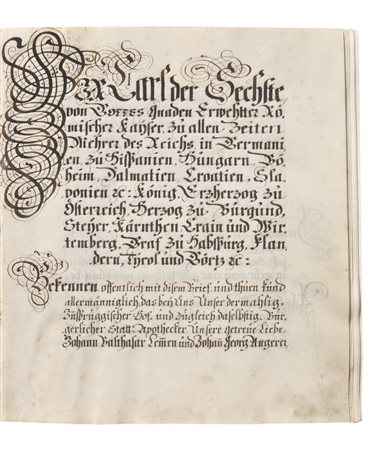 Wir Carl der Sechste
von Gottes Gnaden Erwehlter Rö,
mischer Kayser, zu allen Zeiten
Mehrer des Reichs in Germani
en, zu Hispanien, Hungarn, Bö,
heim, Dalmatien, Croatien, Sla,
vonien &c: König, Erzherzog zu
Österreich, Herzog zu Burgund,
Steÿer, Kärnthen, Crain und Wir,
temberg, Graf zu Habspurg, Flan
dern, Tyrol und Görtz &c:
Bekennen offentlich mit disem Brief und thuen kund
allermänniglich das beÿ Uns Unser dermahlig,
Ÿnsprüggischer Hof, und zugleich daselbstig, Bur,
gerlicher Statt Apothecker Unsere getreue Liebe
Johann Balthasar Lemen und Johan Georg Angerer